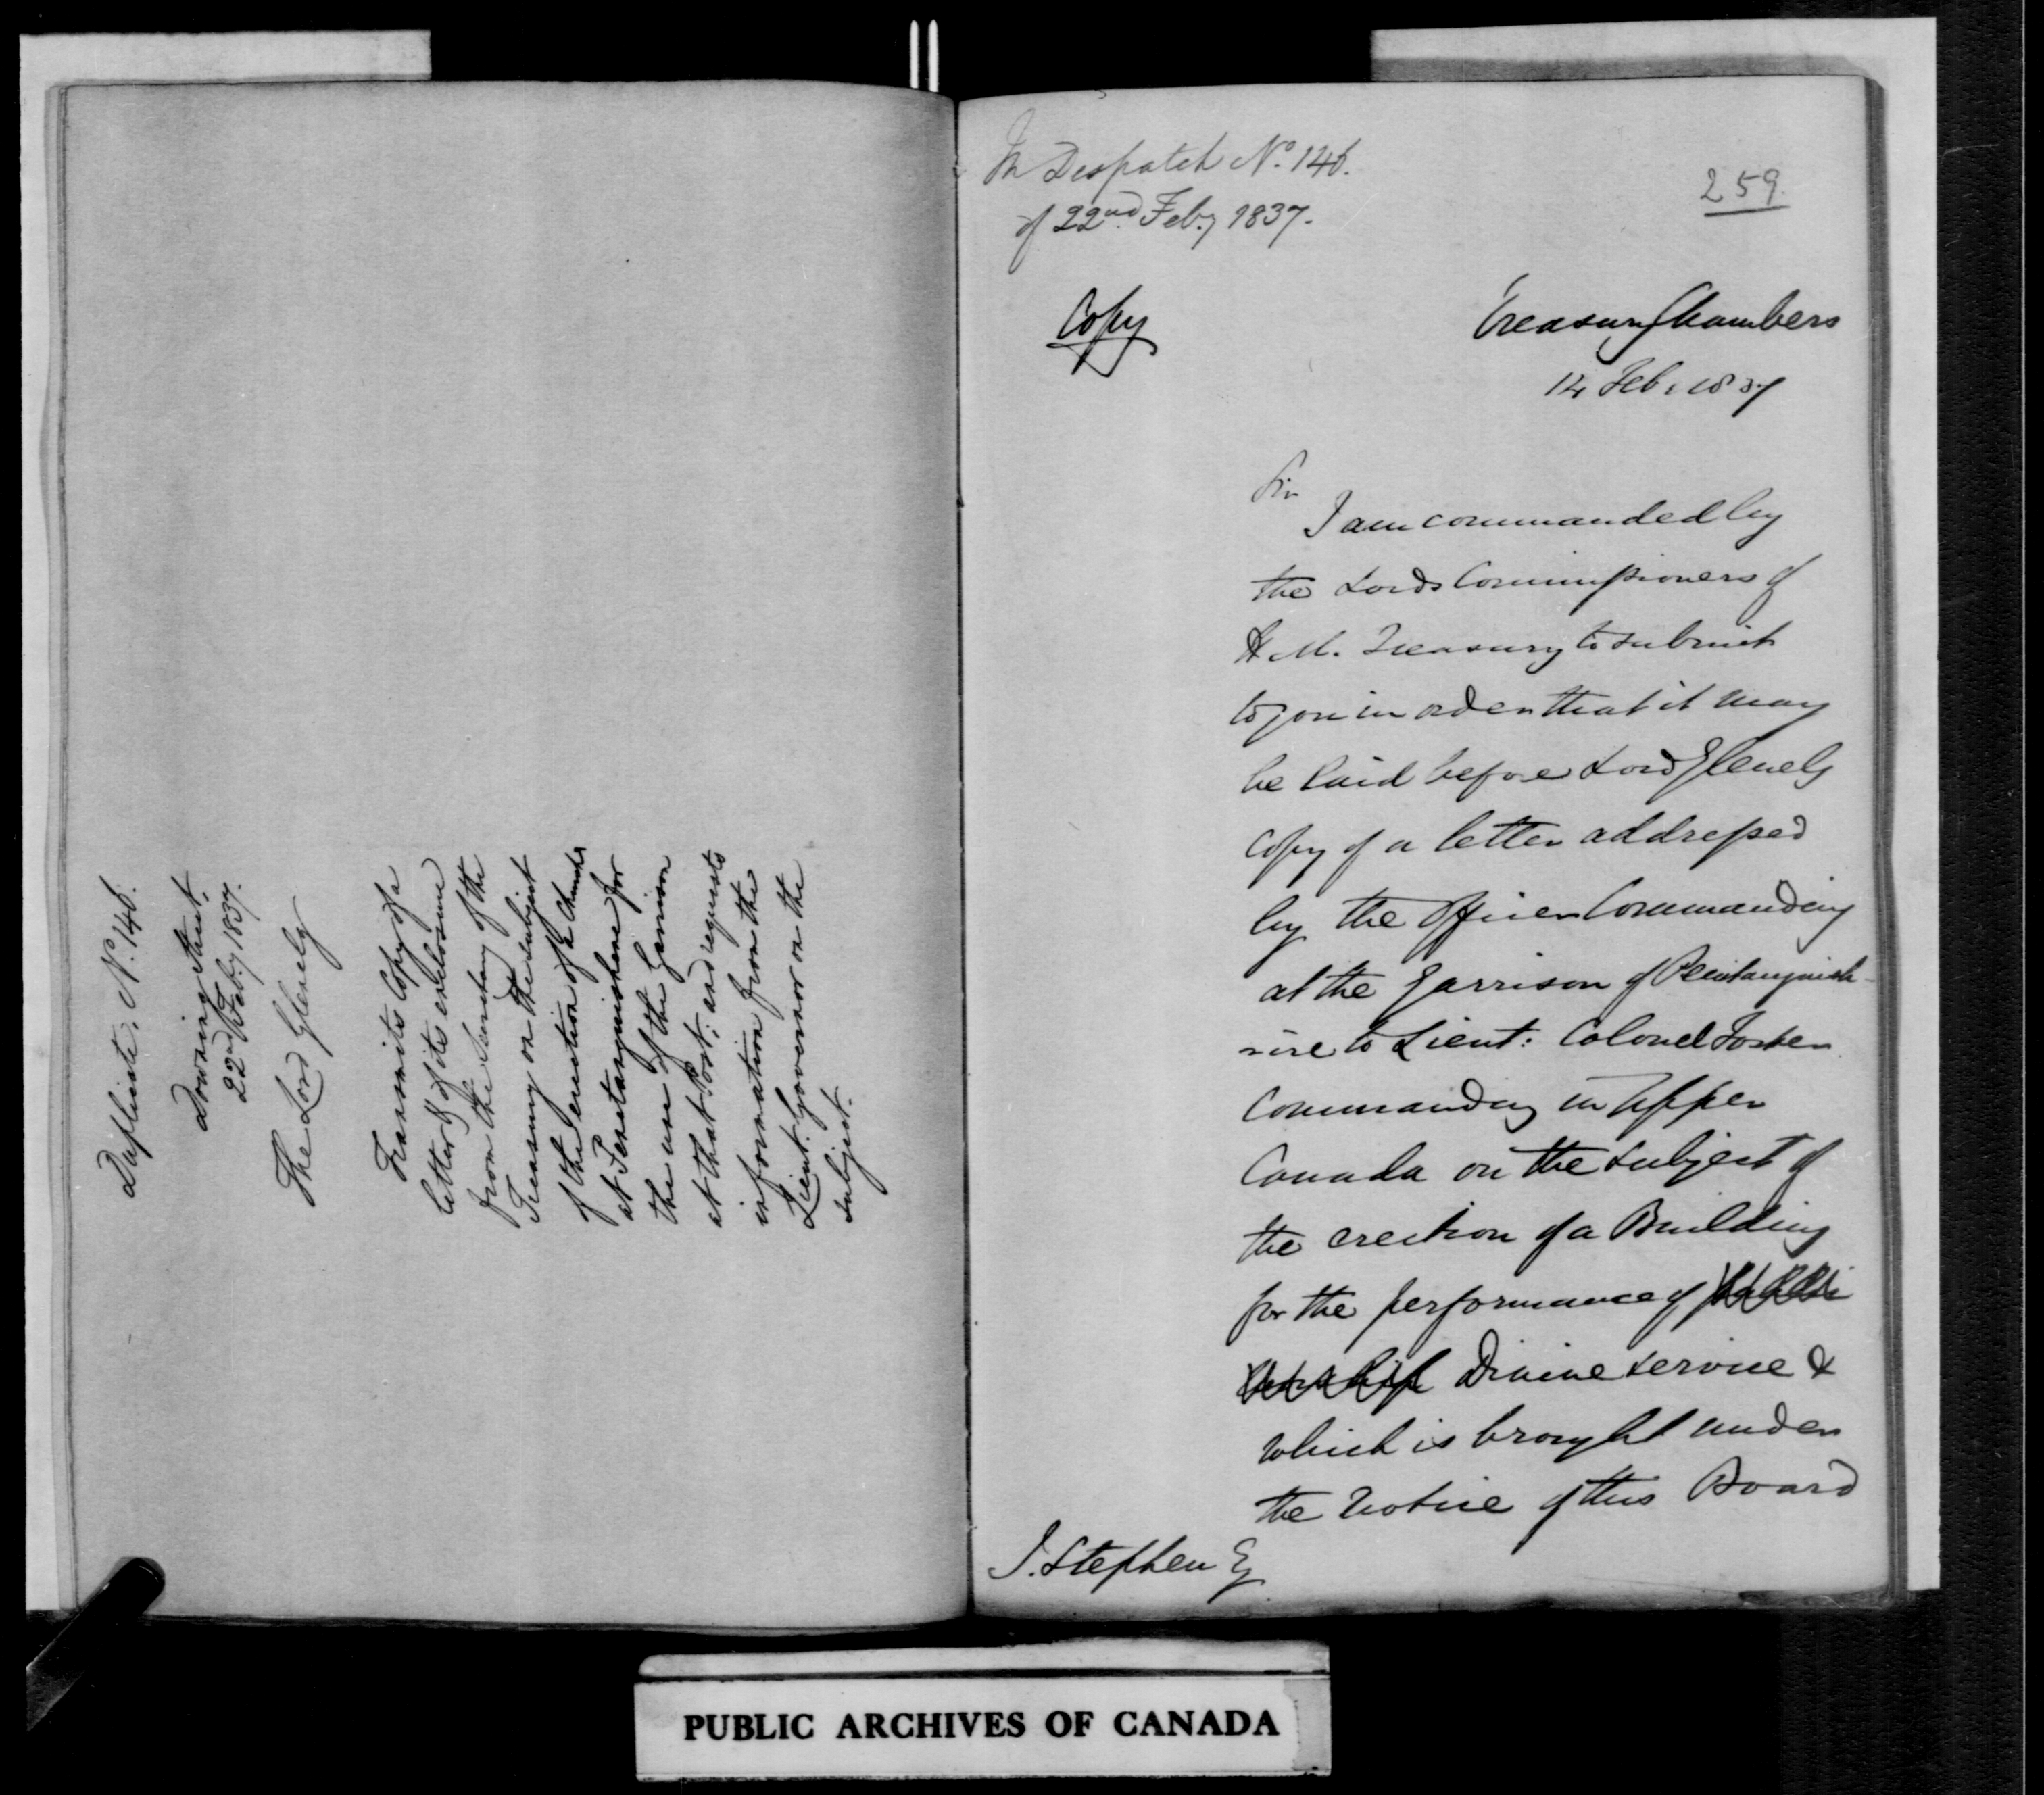 Duplicate. No. 146.
Downing Street,
22nd Feby. 1837.
The Lord Glenelg
Transmits Copy of a
letter & of its enclosure
from the Secretary of the
Treasury on the subject
of the erection of a Church
at Penetanguishene for
the use of the Garrison
at that Post; and requests
information from the
Lieut. Governor on the
subject.
In Despatch No. 146.
of 22nd Feby 1837.
259
Copy
Treasury Chambers
14 Feb. 1837
Sir
I am commanded by
the Lords Commissioners of
H. M. Treasury to submit
to you in order that it may
be laid before Lord Glenelg
copy of a letter addressed
by the Officer Commanding
at the Garrison of Penetanguish-
ine to Lieut: Colonel Foster
Commanding in Upper
Canada on the subject of
the erection of a Building
for the performance of
Divine service &
which is brought under
the notice of this Board
J. Stephen Esq
PUBLIC ARCHIVES OF CANADA